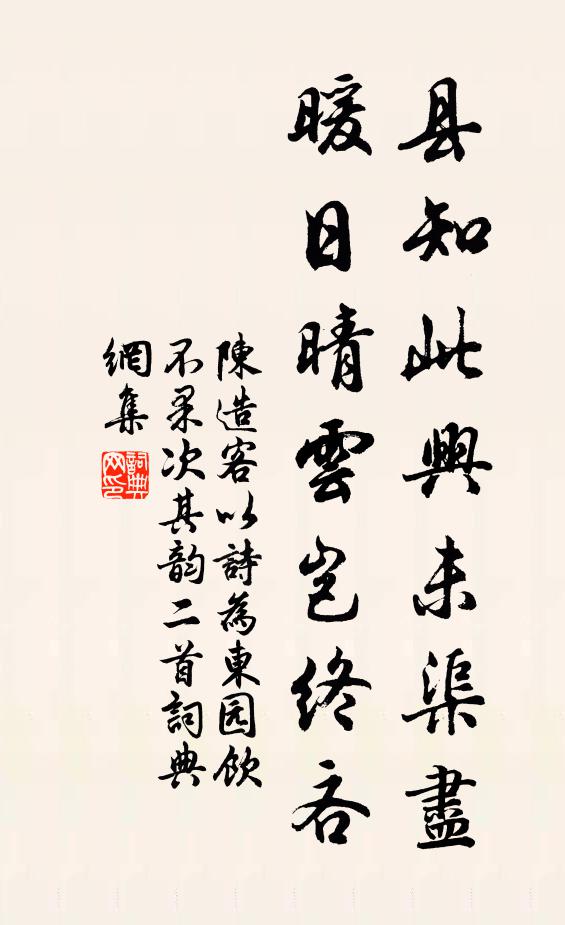 县知此興未渠盡
暖日晴雲岂終吝
陳造客以詩為東园飲
不果次其韵二首詞典
網集
詞典網印